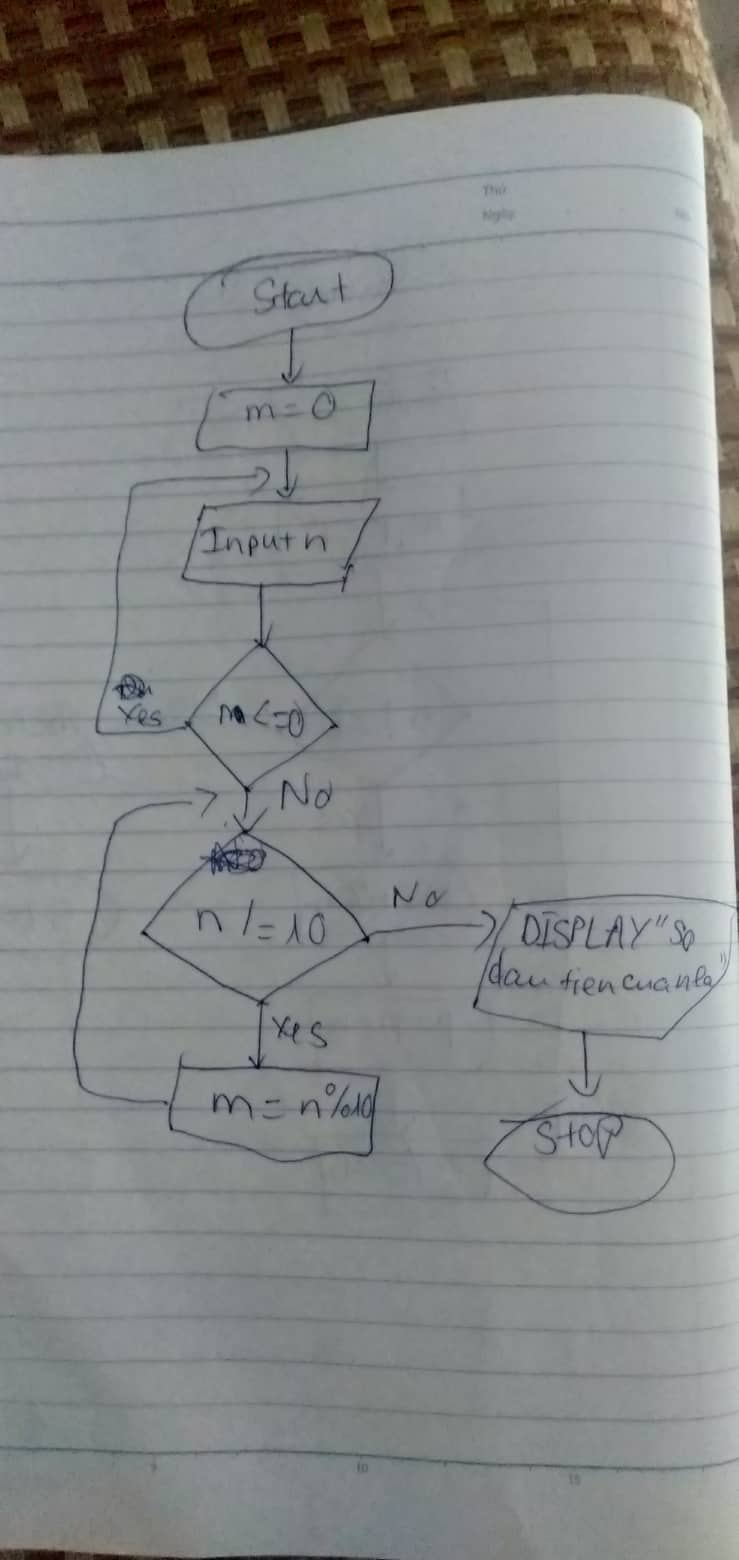 Thứ
Ngày
No.
Start
m = 0
Input n
Yes
m <= 0
No
n /= 10
No
DISPLAY "So
dau tien cua n la"
Yes
m = n%10
STOP
5
10
15